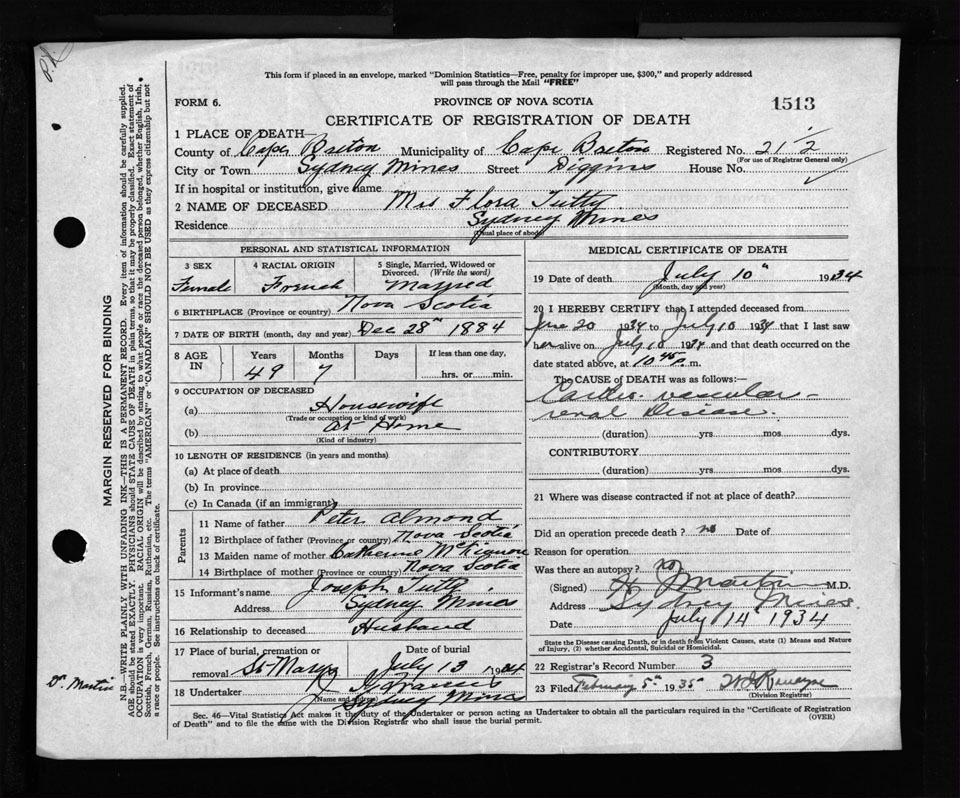 This form if placed in an envelope, marked "Dominion Statistics—Free, penalty for improper use, $300," and properly addressed
will pass through the Mail "FREE"
FORM 6.
PROVINCE OF NOVA SCOTIA
1513
CERTIFICATE OF REGISTRATION OF DEATH
1 PLACE OF DEATH—
County of Cape Breton Municipality of Cape Breton Registered No. 21 1/2
(For use of Registrar General only)
City or Town Sydney Mines Street Diggins House No.
If in hospital or institution, give name
2 NAME OF DECEASED Mrs Flora Tutty
Residence Sydney Mines
(Usual place of abode)
PERSONAL AND STATISTICAL INFORMATION
3 SEX Female
4 RACIAL ORIGIN French
5 Single, Married, Widowed or Divorced. (Write the word) Married
6 BIRTHPLACE (Province or country) Nova Scotia
7 DATE OF BIRTH (month, day and year) Dec 28" 1884
8 AGE IN
Years Months Days If less than one day,
49 7 hrs. or min.
9 OCCUPATION OF DECEASED
(a) Housewife
(Trade or occupation or kind of work)
(b) At Home
(Kind of industry)
10 LENGTH OF RESIDENCE (in years and months)
(a) At place of death
(b) In province
(c) In Canada (if an immigrant)
Parents
11 Name of father Peter Almond
12 Birthplace of father (Province or country) Nova Scotia
13 Maiden name of mother Catherine
14 Birthplace of mother (Province or country) Nova Scotia
15 Informant's name Joseph Tutty
Address Sydney Mines
16 Relationship to deceased Husband
17 Place of burial, cremation or removal St Marys
Date of burial July 13 1934
18 Undertaker
(Name and address)
Sydney Mines
MEDICAL CERTIFICATE OF DEATH
19 Date of death July 10" 1934
(Month, day and year)
20 I HEREBY CERTIFY that I attended deceased from
June 20 1934 to July 10 1934 that I last saw
her alive on July 10 1934 and that death occurred on the
date stated above, at 10.45 a. m.
The CAUSE OF DEATH was as follows:—
Cardio-vascular-
renal Disease.
(duration) yrs. mos. dys.
CONTRIBUTORY
(duration) yrs. mos. dys.
21 Where was disease contracted if not at place of death?
Did an operation precede death? no Date of
Reason for operation
Was there an autopsy? no
(Signed) Martin M.D.
Address Sydney Mines
Date July 14 1934
State the Disease causing Death, or in death from Violent Causes, state (1) Means and Nature
of Injury, (2) whether Accidental, Suicidal or Homicidal.
22 Registrar's Record Number 3
23 Filed February 5th 1935
(Division Registrar)
Sec. 46—Vital Statistics Act makes it the duty of the Undertaker or person acting as Undertaker to obtain all the particulars required in the "Certificate of Registration
of Death" and to file the same with the Division Registrar who shall issue the burial permit.
(OVER)
MARGIN RESERVED FOR BINDING
N.B.—WRITE PLAINLY WITH UNFADING INK—THIS IS A PERMANENT RECORD. Every item of information should be carefully supplied.
AGE should be stated EXACTLY. PHYSICIANS should STATE CAUSE OF DEATH in plain terms, so that it may be properly classified. Exact statement of
OCCUPATION is very important. RACIAL ORIGIN will be described by stating to what people or race the deceased person belonged, whether English, Irish,
Scottish, French, German, Russian, Ruthenian, etc. The terms "AMERICAN" or "CANADIAN" SHOULD NOT BE USED as they express citizenship but not
a race or people. See instructions on back of certificate.
Dr. Martin